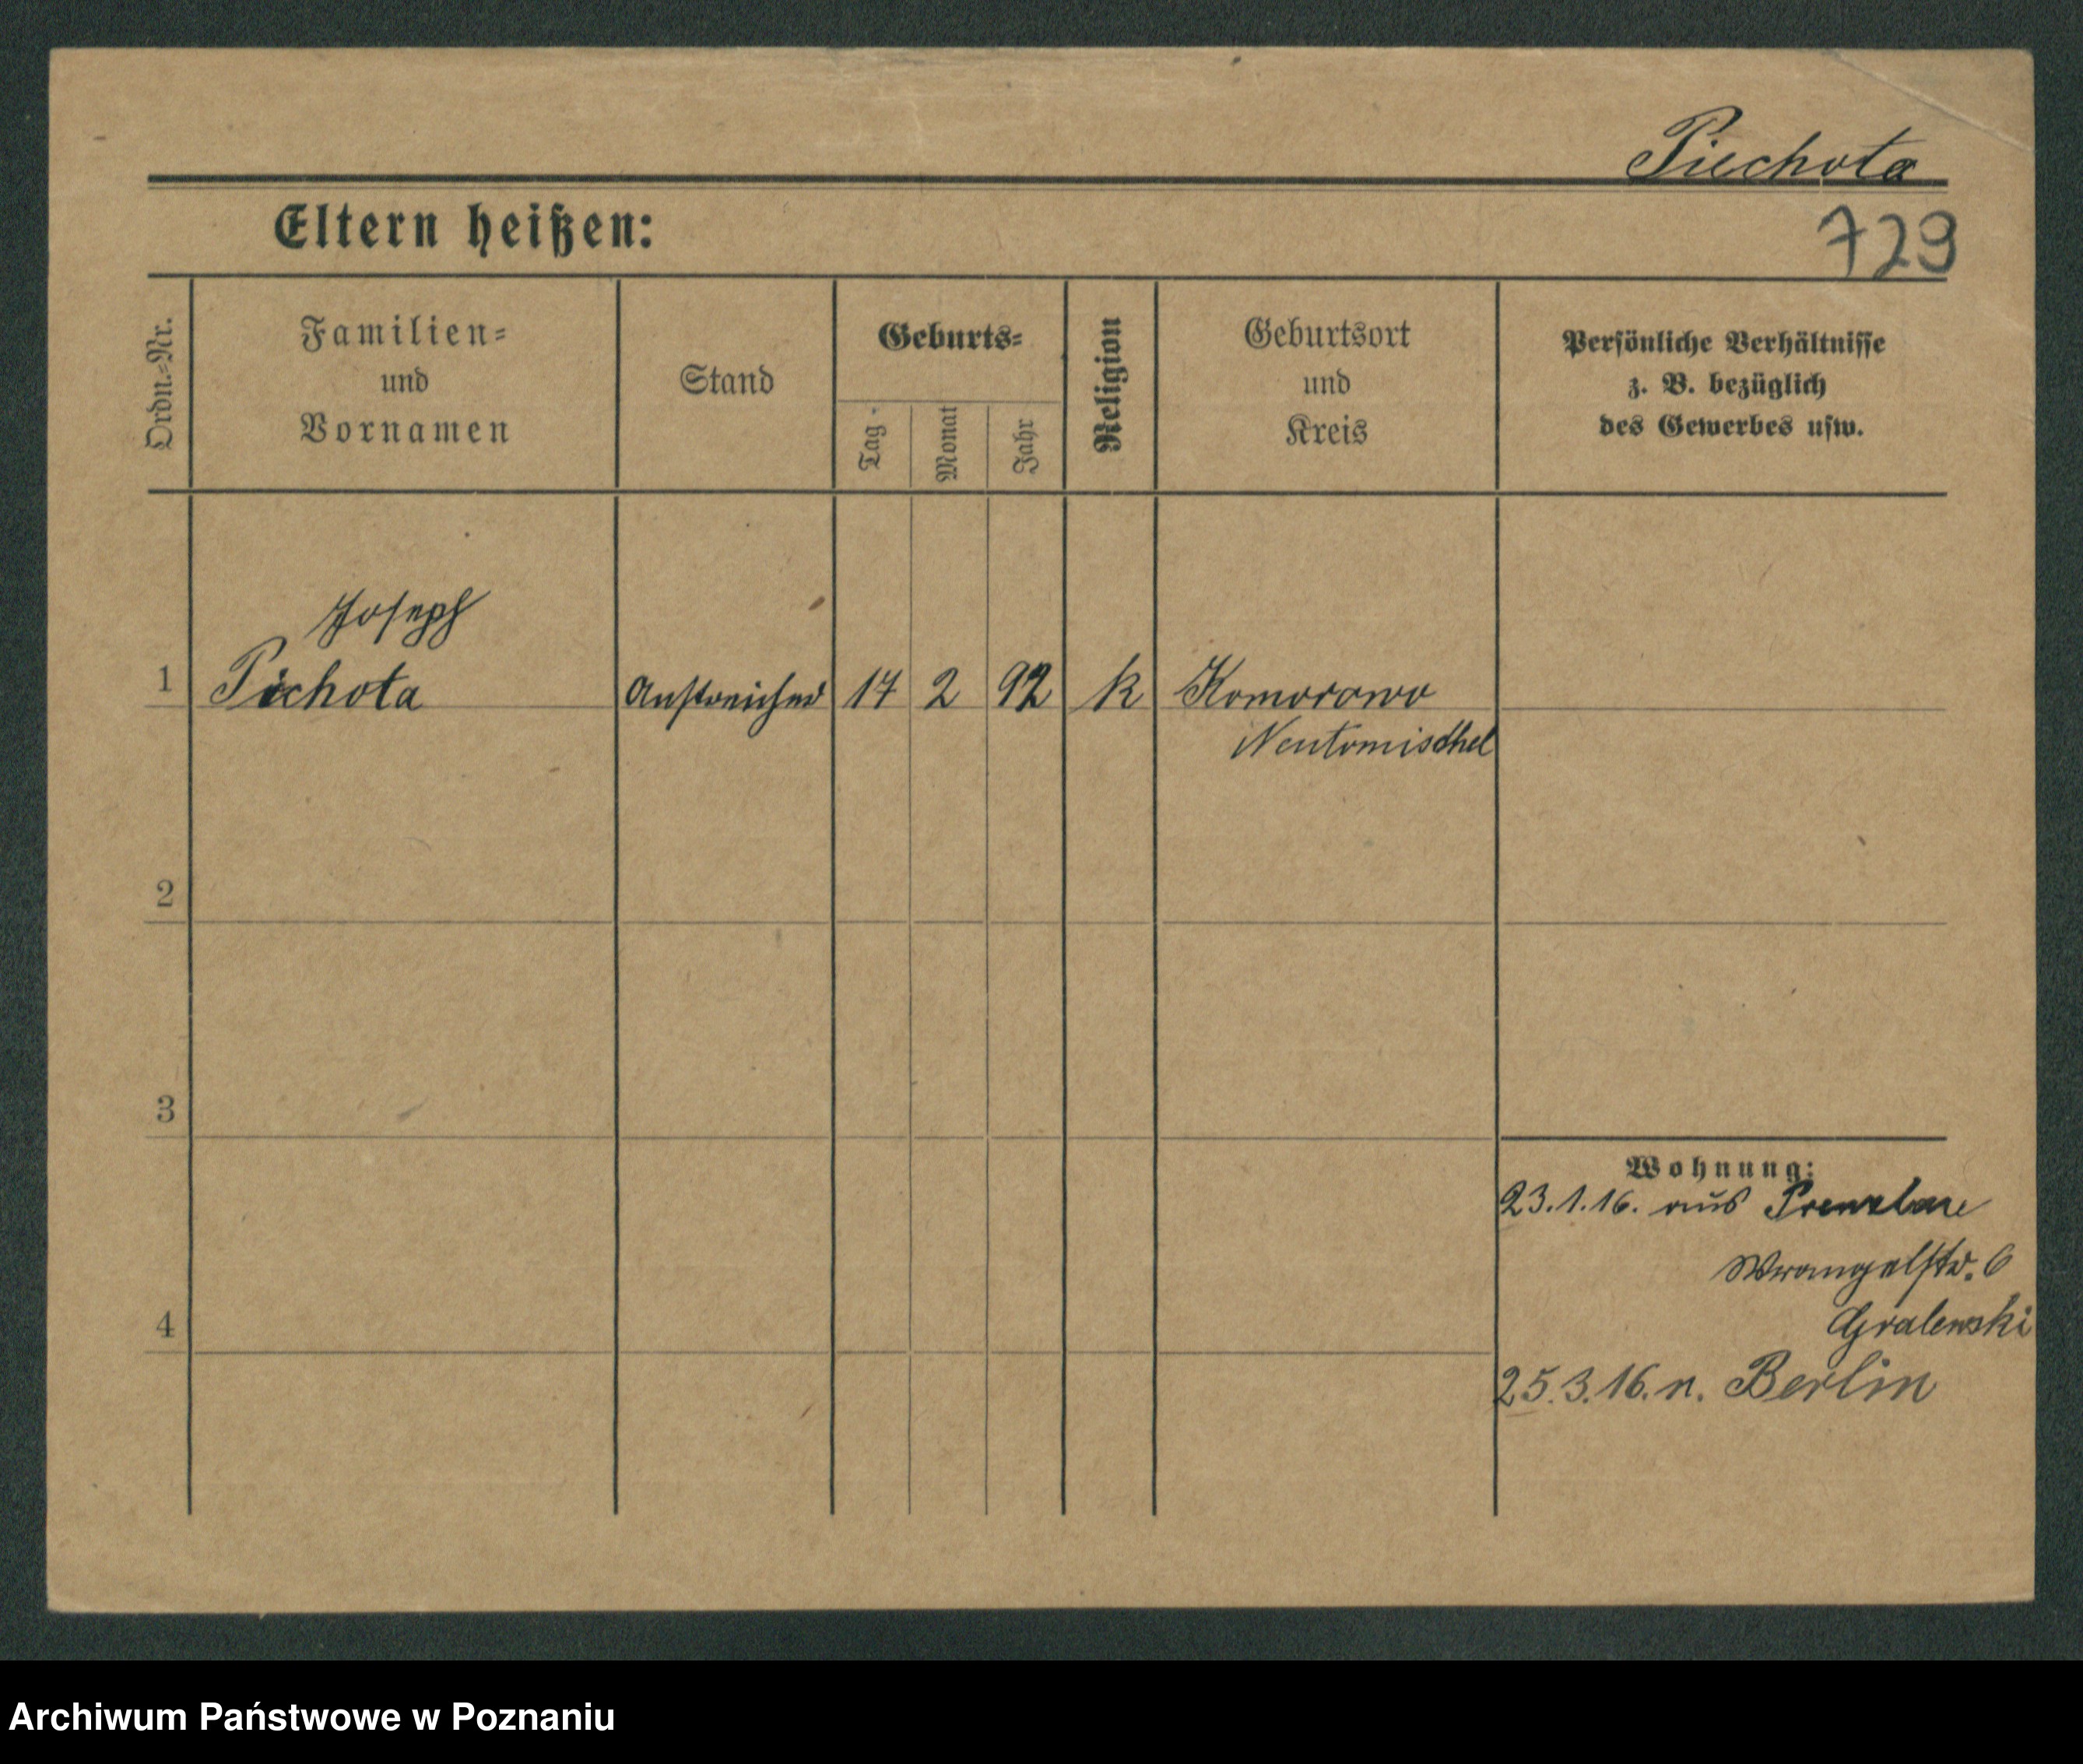 Piechota
Eltern heißen:
729
Ordn.=Nr.
Familien=
und
Vornamen
Stand
Geburts=
Tag
Monat
Jahr
Religion
Geburtsort
und
Kreis
Persönliche Verhältnisse
z. B. bezüglich
des Gewerbes usw.
Joseph
1 Piechota Anstreicher 17 2 92 k Komorowo
Neutomischel
2
3
4
Wohnung:
23.1.16. aus
Wrangelstr. 6
Gralewski
25.3.16. n. Berlin
Archiwum Państwowe w Poznaniu